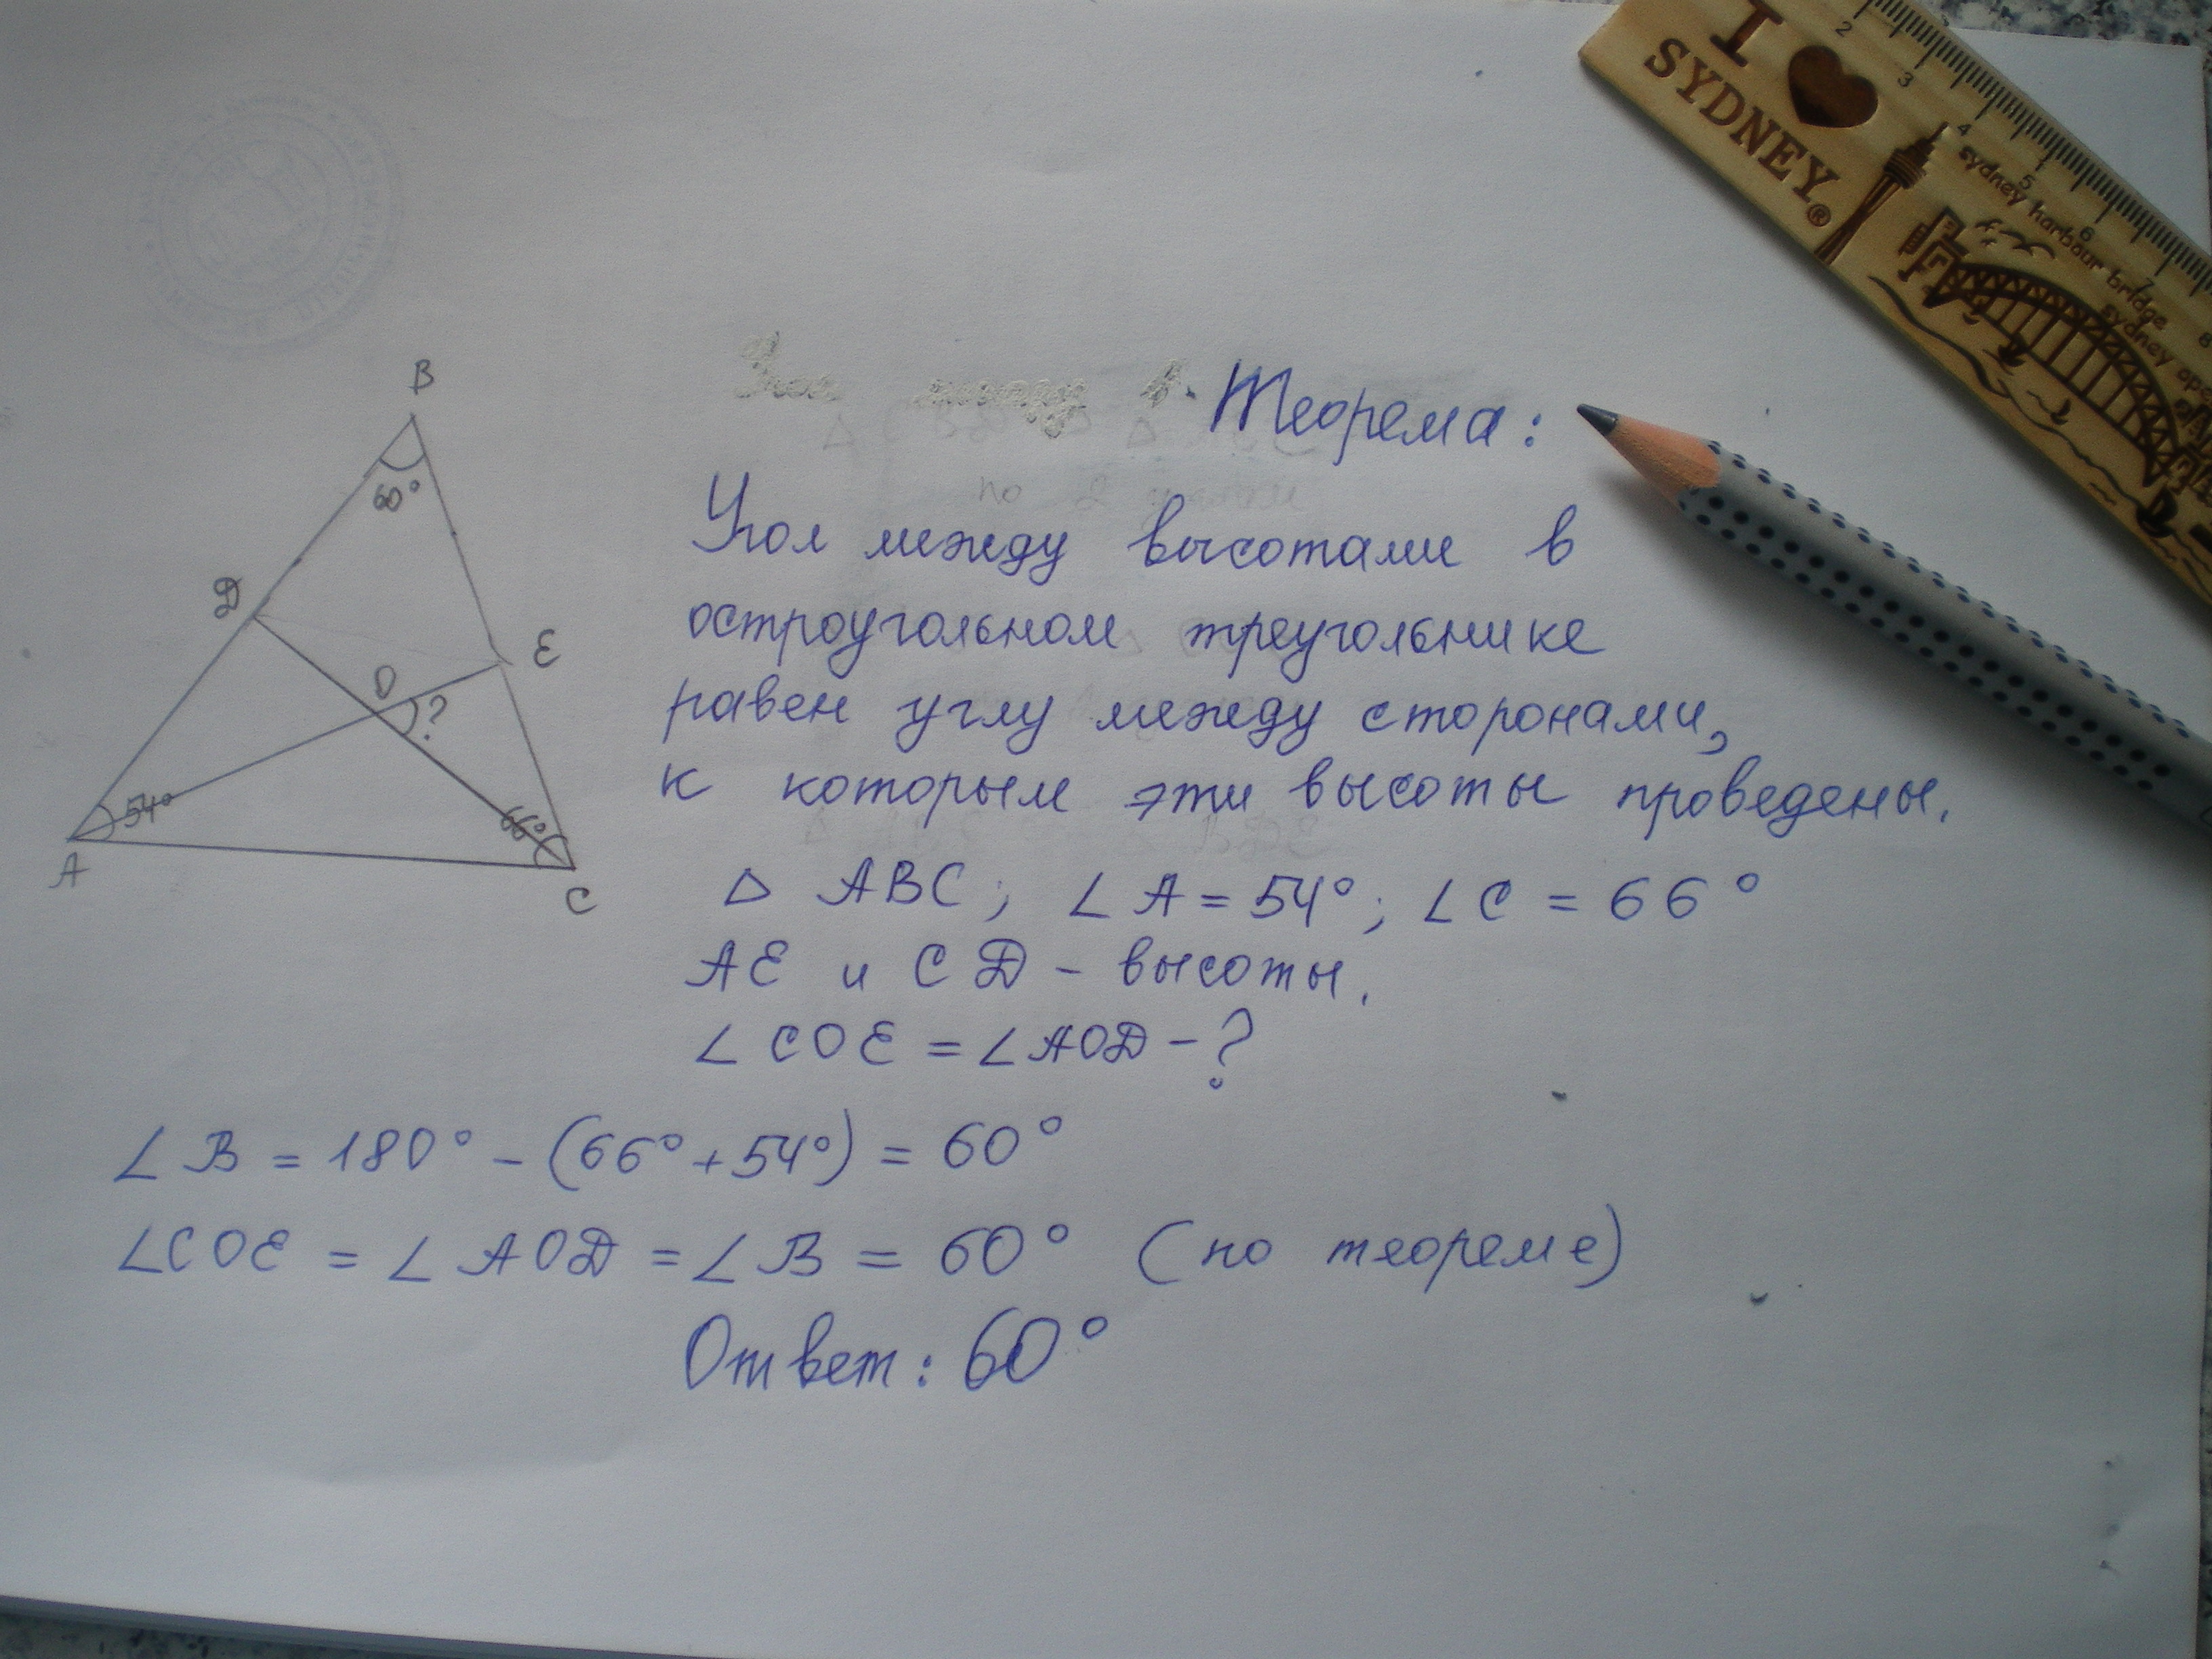 I ♥
SYDNEY®
sydney harbour bridge
2
3
4
5
6
7
8
B
60°
D
E
O
?
54°
66°
A
C
Теорема:
Угол между высотами в
остроугольном треугольнике
равен углу между сторонами,
к которым эти высоты проведены.
△ ABC; ∠A = 54°; ∠C = 66°
AE и CD - высоты.
∠COE = ∠AOD - ?
∠B = 180° - (66° + 54°) = 60°
∠COE = ∠AOD = ∠B = 60° (по теореме)
Ответ: 60°